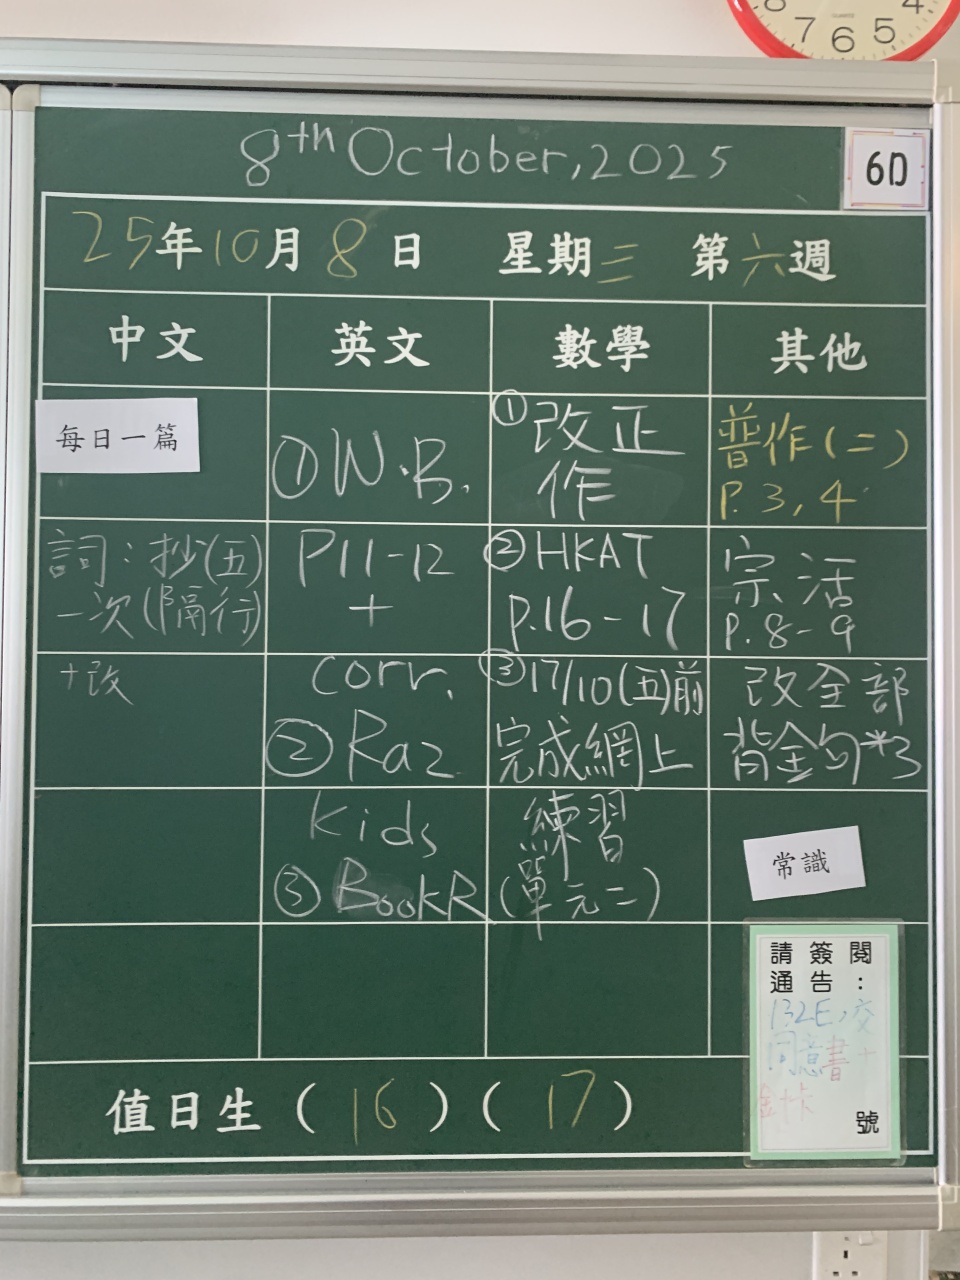 8 4
7 6 5
8th October, 2025
6D
25年10月8日 星期三 第六週
中文
英文
數學
其他
每日一篇
詞：抄(五)
一次(隔行)
+改
①W.B.
P11-12
+
corr.
②Raz
kids
③BookR
①改正
作
②HKAT
p.16-17
③17/10(五)前
完成網上
練習
(單元二)
普作(二)
P.3,4
宗活
P.8-9
改全部
背金句*3
常識
請簽閱
通告：
132E,交
同意書+
號
值日生(16)(17)